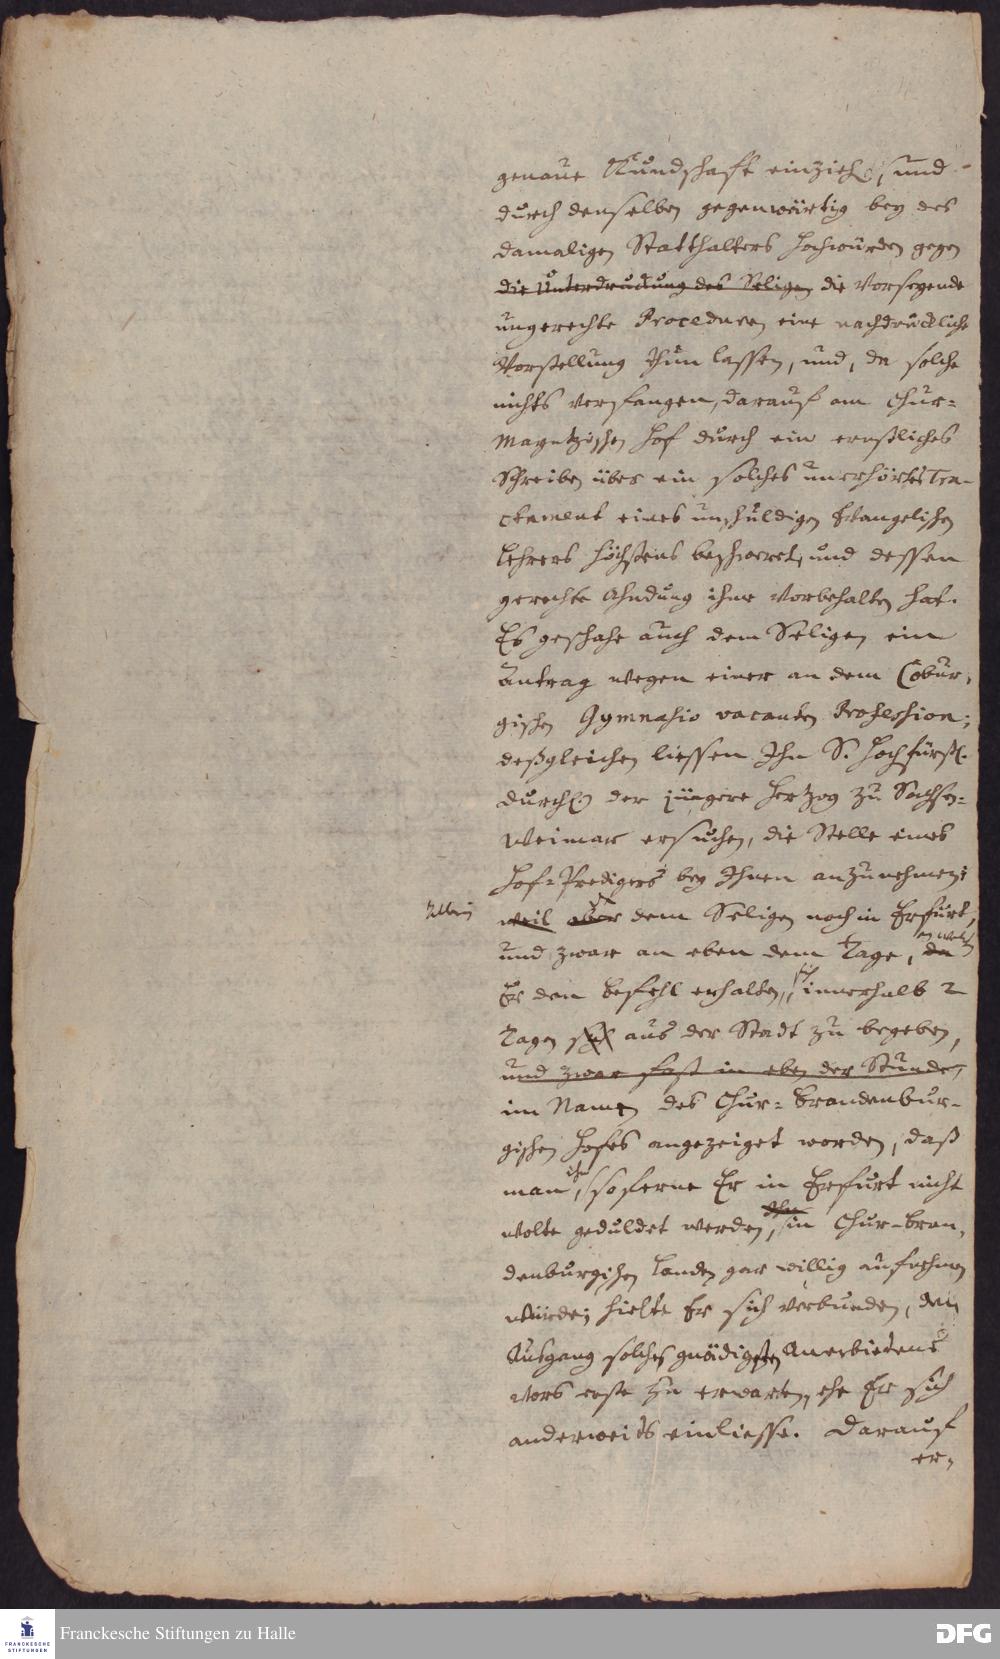 genaue Kundschafft einziehen, und
durch denselben gegenwärtig bey des
damaligen Statthalters Hochwürden gegen
die Unterdruckung des Seligen die Vorsegende
ungerechte Proceduren eine nachdrückliche
Vorstellung thun lassen, und, da solche
nichts verfangen, darauf am Chur=
Mayntzischen Hof durch ein ernstliches
Schreiben über ein solches unerhörtes Tra-
ctament eines unschuldigen Evangelischen
Lehrers höchstens beschweret, und dessen
gerechte Ahndung ihme vorbehalten hat.
Es geschahe auch dem Seligen ein
Antrag wegen einer an dem Cobur,
gischen Gymnasio vacanten Profession;
deßgleichen liessen Ihn S. Hochfürstl.
Durchl. der jüngere Hertzog zu Sachsen=
Weimar ersuchen, die Stelle eines
Hof=Predigers bey Ihnen anzunehmen;
Allein
weil aber dem Seligen noch in Erfurt,
und zwar an eben dem Tage, da
an welchem
Er den Befehl erhalten, sich innerhalb 2
Tagen sich aus der Stadt zu begeben,
und zwar fast in eben der Stunde,
im Namen des Chur=Brandenbur-
gischen Hofes angezeiget worden, daß
man ihn, soferne Er in Erfurt nicht
wolte geduldet werden, Ihn in Chur-Bran,
denburgischen Landen gar willig aufnehmen
würde; hielte Er sich verbunden, den
Ausgang solches gnädigsten Anerbietens
vors erste zu erwarten, ehe Er sich
anderweits einliesse. Darauf
er,
Franckesche Stiftungen zu Halle
FRANCKESCHE
STIFTUNGEN
DFG